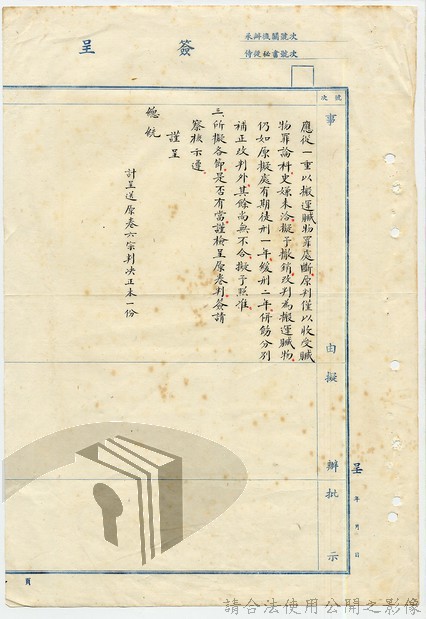 簽呈
來辦機關號次
侍從秘書號次
號次
事由擬辦批示
應從一重以搬運贓物罪處斷原判僅以收受贓
物罪論科史嫌未洽擬予撤銷改判為搬運贓物
仍如原擬處有期徒刑一年緩刑二年併飭分別
補正改判外其餘尚無不合擬予照准
三、所擬各節是否有當謹檢呈原卷判簽請
察核示遵
謹呈
總統
計呈送原卷六宗判決正本一份
呈 年 月 日
頁
請合法使用公開之影像